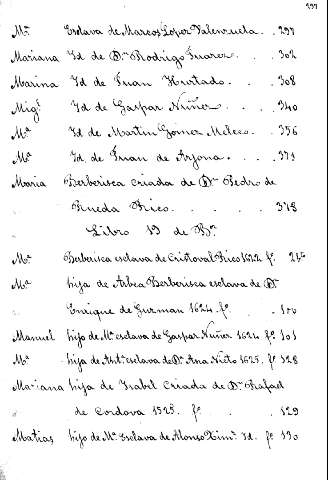 Mª Esclava de Marcos Lopez Valenzuela . . 297
Mariana Id de Dn Rodrigo Suarez . . 302
Marina Id de Juan Hurtado . . 308
Migl Id de Gaspar Nuñez . . . 340
Mª Id de Martin Gomez Meleco . . 356
Mª Id de Juan de Arjona . . . 371
Maria Berberisca criada de Dn Pedro de
Rueda Rico . . . . . 378
Libro 19 de Bs
Mª Berberisca esclava de Cristoval Rico 1622 fº
Mª hija de Arbea Berberisca esclava de Dn
Enrique de Guzman 1624. fº . . 100
Manuel hijo de Mª esclava de Gaspar Nuñez 1624 fº 101
Mª hija de Antª esclava de Dª Ana Nieto 1625. fº 128
Mariana hija de Isabel Criada de Dn Rafael
de Cordova 1525. fº . . 129
Matias hijo de Mª Esclava de Alonso Ximz Id. fº 130